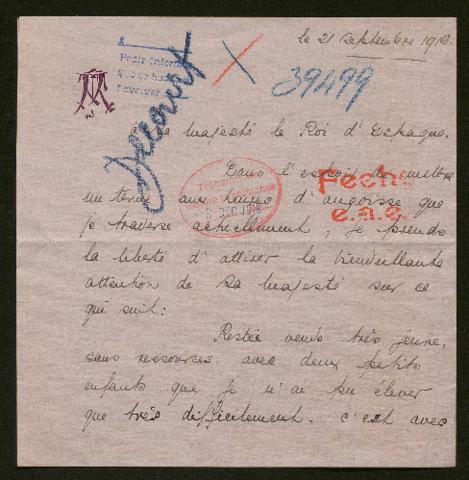 le 21 septembre 191
Pedir inform
39499
a majesté le Roi d'Espagne.
Dans l'espoir de mettre
Fecha
un terme aux heures d'angoisse que
e.n.e.
je traverse actuellement, je prends
la liberté d'attirer la bienveillante
attention de Sa majesté sur ce
qui suit:
Restée veuve très jeune,
sans ressources, avec deux petits
enfants que je n'ai pu élever
que très difficilement. c'est avec